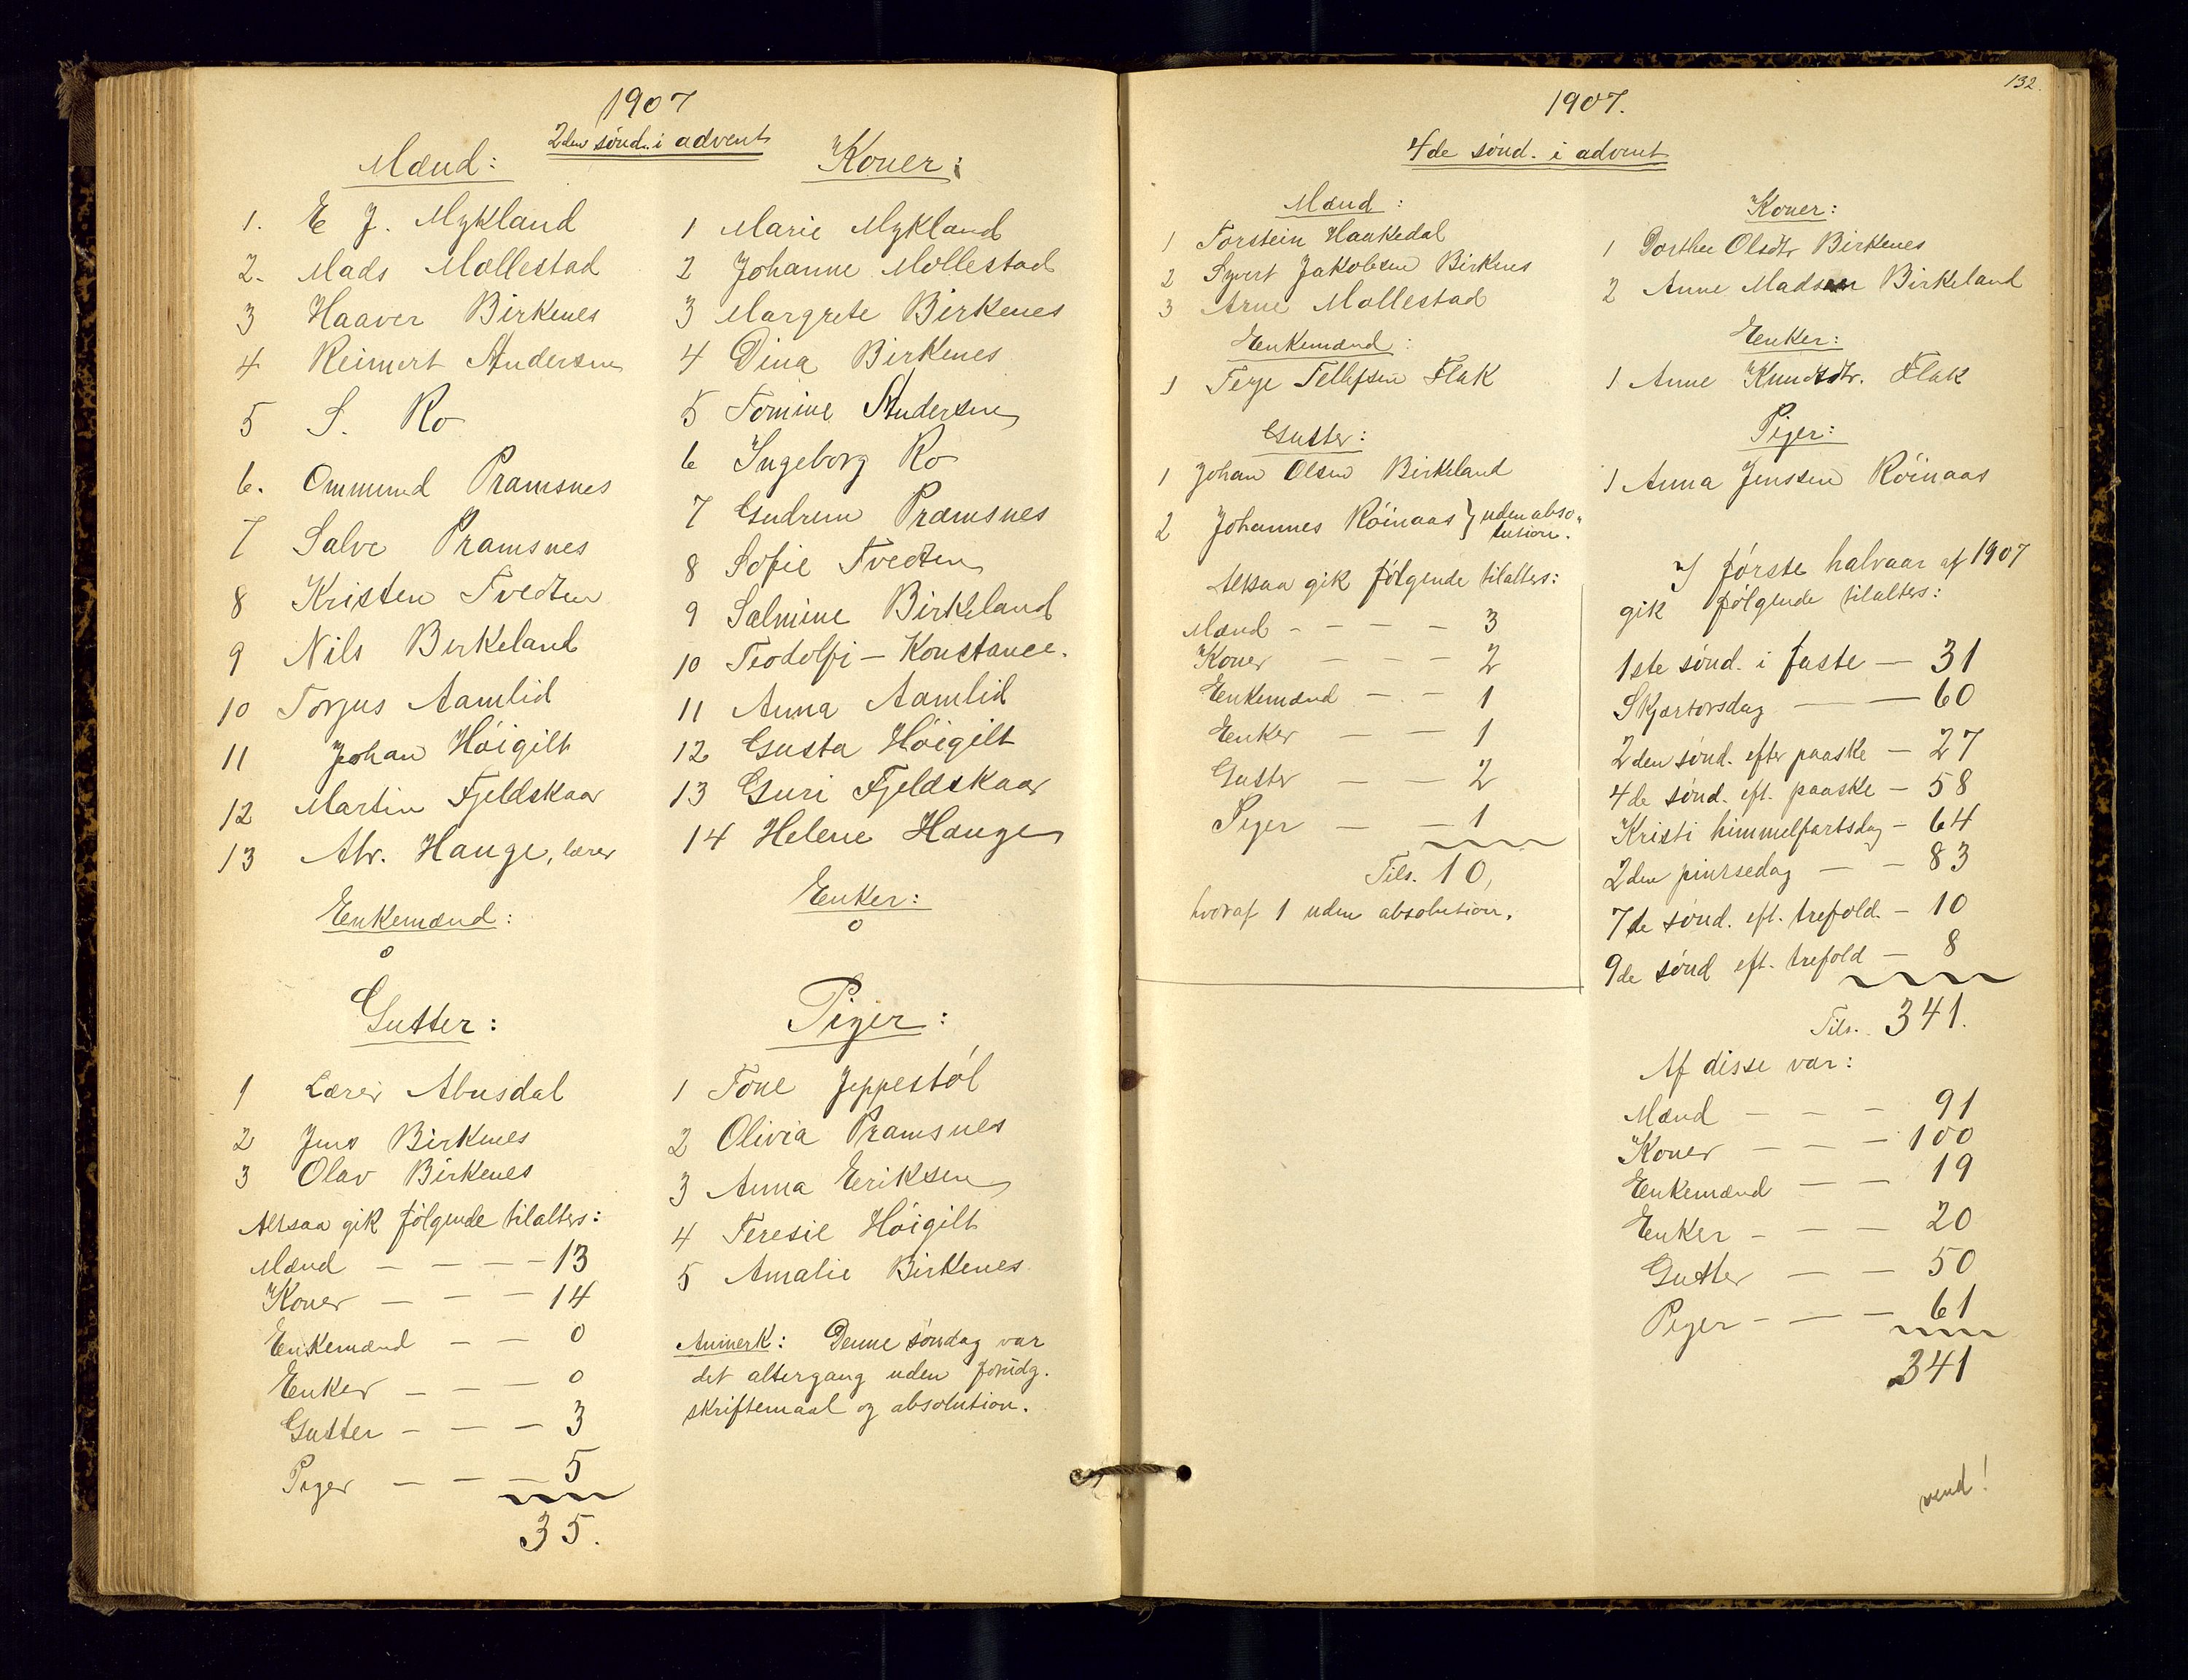 1907
2den sönd. i advent
Mænd:
1. E J. Mykland
2. Mads Mollestad
3 Haaver Birkenes
4 Reinert Andersen
5 S. Ro
6. Ommund Pramsnes
7 Salve Pramsnes
8 Kristen Tvedten
9 Nils Birkeland
10 Torjus Aamlid
11 Johan Höigilt
12 Martin Fjeldskaar
13 Atr. Hauge, lærer
Enkemænd:
0
Gutter:
1 Lærer Abusdal
2 Jens Birkenes
3 Olav Birkenes
Altsaa gik fölgende tilalters:
Mænd – – – – 13
Koner – – – 14
Enkemænd – – 0
Enker – – – 0
Gutter – – – 3
Piger – – – 5
35.
Koner:
1 Marie Mykland
2 Johanne Mollestad
3 Margrete Birkenes
4 Dina Birkenes
5 Tomine Andersen
6 Ingeborg Ro
7 Gudrun Pramsnes
8 Sofie Tvedten
9 Salmine Birkeland
10 Teodolfi – Konstance.
11 Anna Aamlid
12 Gusta Höigilt
13 Guri Fjeldskaar
14 Helene Hauge
Enker:
0
Piger:
1 Tone Jeppestöl
2 Olivia Pramsnes
3 Anna Eriksen
4 Teresie Höigilt
5 Amalie Birkenes
Anmerk: Denne söndag var
det altergang uden forudg.
skriftemaal og absolution.
132.
1907.
4de sönd. i advent
Mænd:
1 Torstein Haakedal
2 Syvert Jakobsen Birknes
3 Arne Mollestad
Enkemænd:
1 Terje Tellefsen Flak
Gutter:
1 Johan Olsen Birkeland
2 Johannes Röinaas } uden abso-
lution.
Altsaa gik fölgende tilalters:
Mænd – – – – 3
Koner – – – 2
Enkemænd – – 1
Enker – – 1
Gutter – – 2
Piger – – 1
Tils. 10,
hvoraf 1 uden absolution.
Koner:
1 Dorthe Olsdtr Birkenes
2 Anne Madsen Birkeland
Enker:
1 Anne Knudsdtr. Flak
Piger:
1 Anna Jenssen Röinaas
I förste halvaar af 1907
gik fölgende tilalters:
1ste sönd. i faste – 31
Skjærtorsdag – – 60
2den sönd. efter paaske – 27
4de sönd. eft. paaske – 58
Kristi himmelfartsdag – 64
2den pintsedag – – 83
7de sönd. eft. trefold. – 10
9de sönd eft. trefold – 8
Tils. 341.
Af disse var:
Mænd – – – 91
Koner – – – 100
Enkemænd – – 19
Enker – – – 20
Gutter – – 50
Piger – – – 61
341
vend!